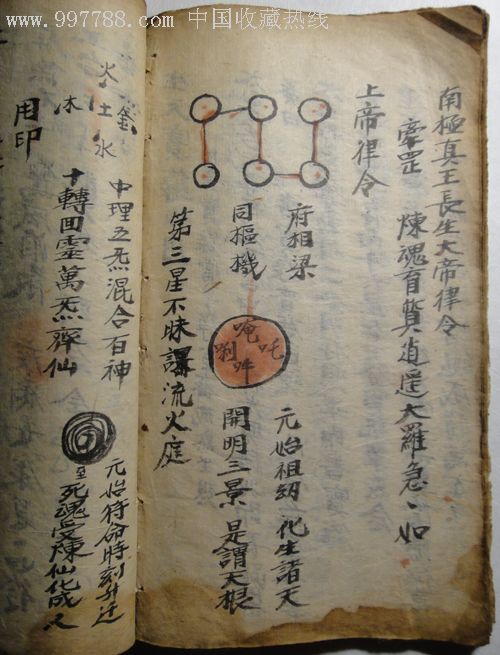 www.997788.com 中国收藏热线
南極真王長生大帝律令
牽罡 煉魂育質逍遥大羅急、如
上帝律令
府相梁
同樞機
唵吽吒唎
元始祖炁 化生諸天
開明三景 是謂天根
第三星不昧 流火庭
火
金 土 木
水
用印
中理五炁混合百神
十轉回靈萬炁齊仙
元始符命時刻升迁
死魂受煉仙化成人